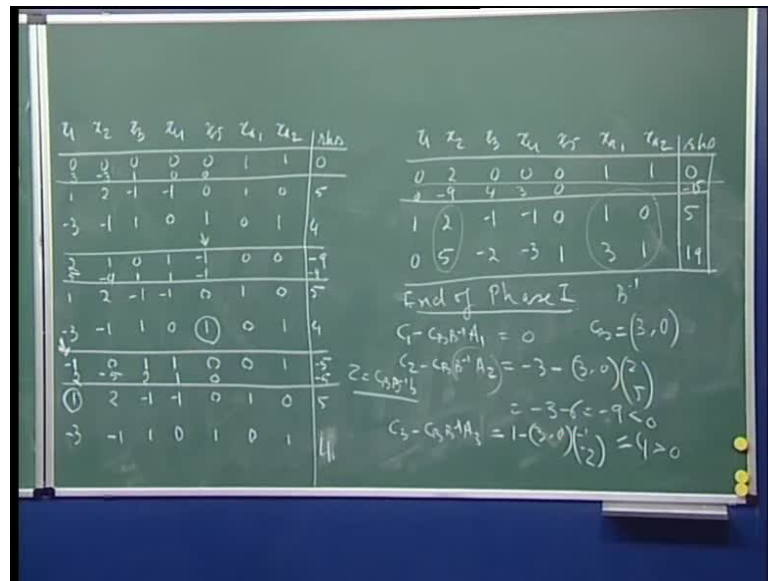 x1 x2 x3 x4 x5 xa1 xa2 rhs
0 0 0 0 0 1 1 0
3 -3 1 0 0
1 2 -1 -1 0 1 0 5
-3 -1 1 0 1 0 1 4
2 1 0 1 -1 0 0 -9
1 2 -1 -1 0 1 0 5
-3 -1 1 0 1 0 1 4
-1 0 1 1 0 0 1 -5
1 2 -1 -1 0 1 0 5
-3 -1 1 0 1 0 1 4
x1 x2 x3 x4 x5 xa1 xa2 rhs
0 2 0 0 0 1 1 0
0 -9 4 3 0 -15
1 2 -1 -1 0 1 0 5
0 5 -2 -3 1 3 1 19
End of Phase I B⁻¹
C1 - CB B⁻¹ A1 = 0 CB = (3, 0)
Z = CB B⁻¹ b
C2 - CB B⁻¹ A2 = -3 - (3, 0) (2 5)
= -3 - 6 = -9 < 0
C3 - CB B⁻¹ A3 = 1 - (3, 0) (-1 -2) = 4 > 0